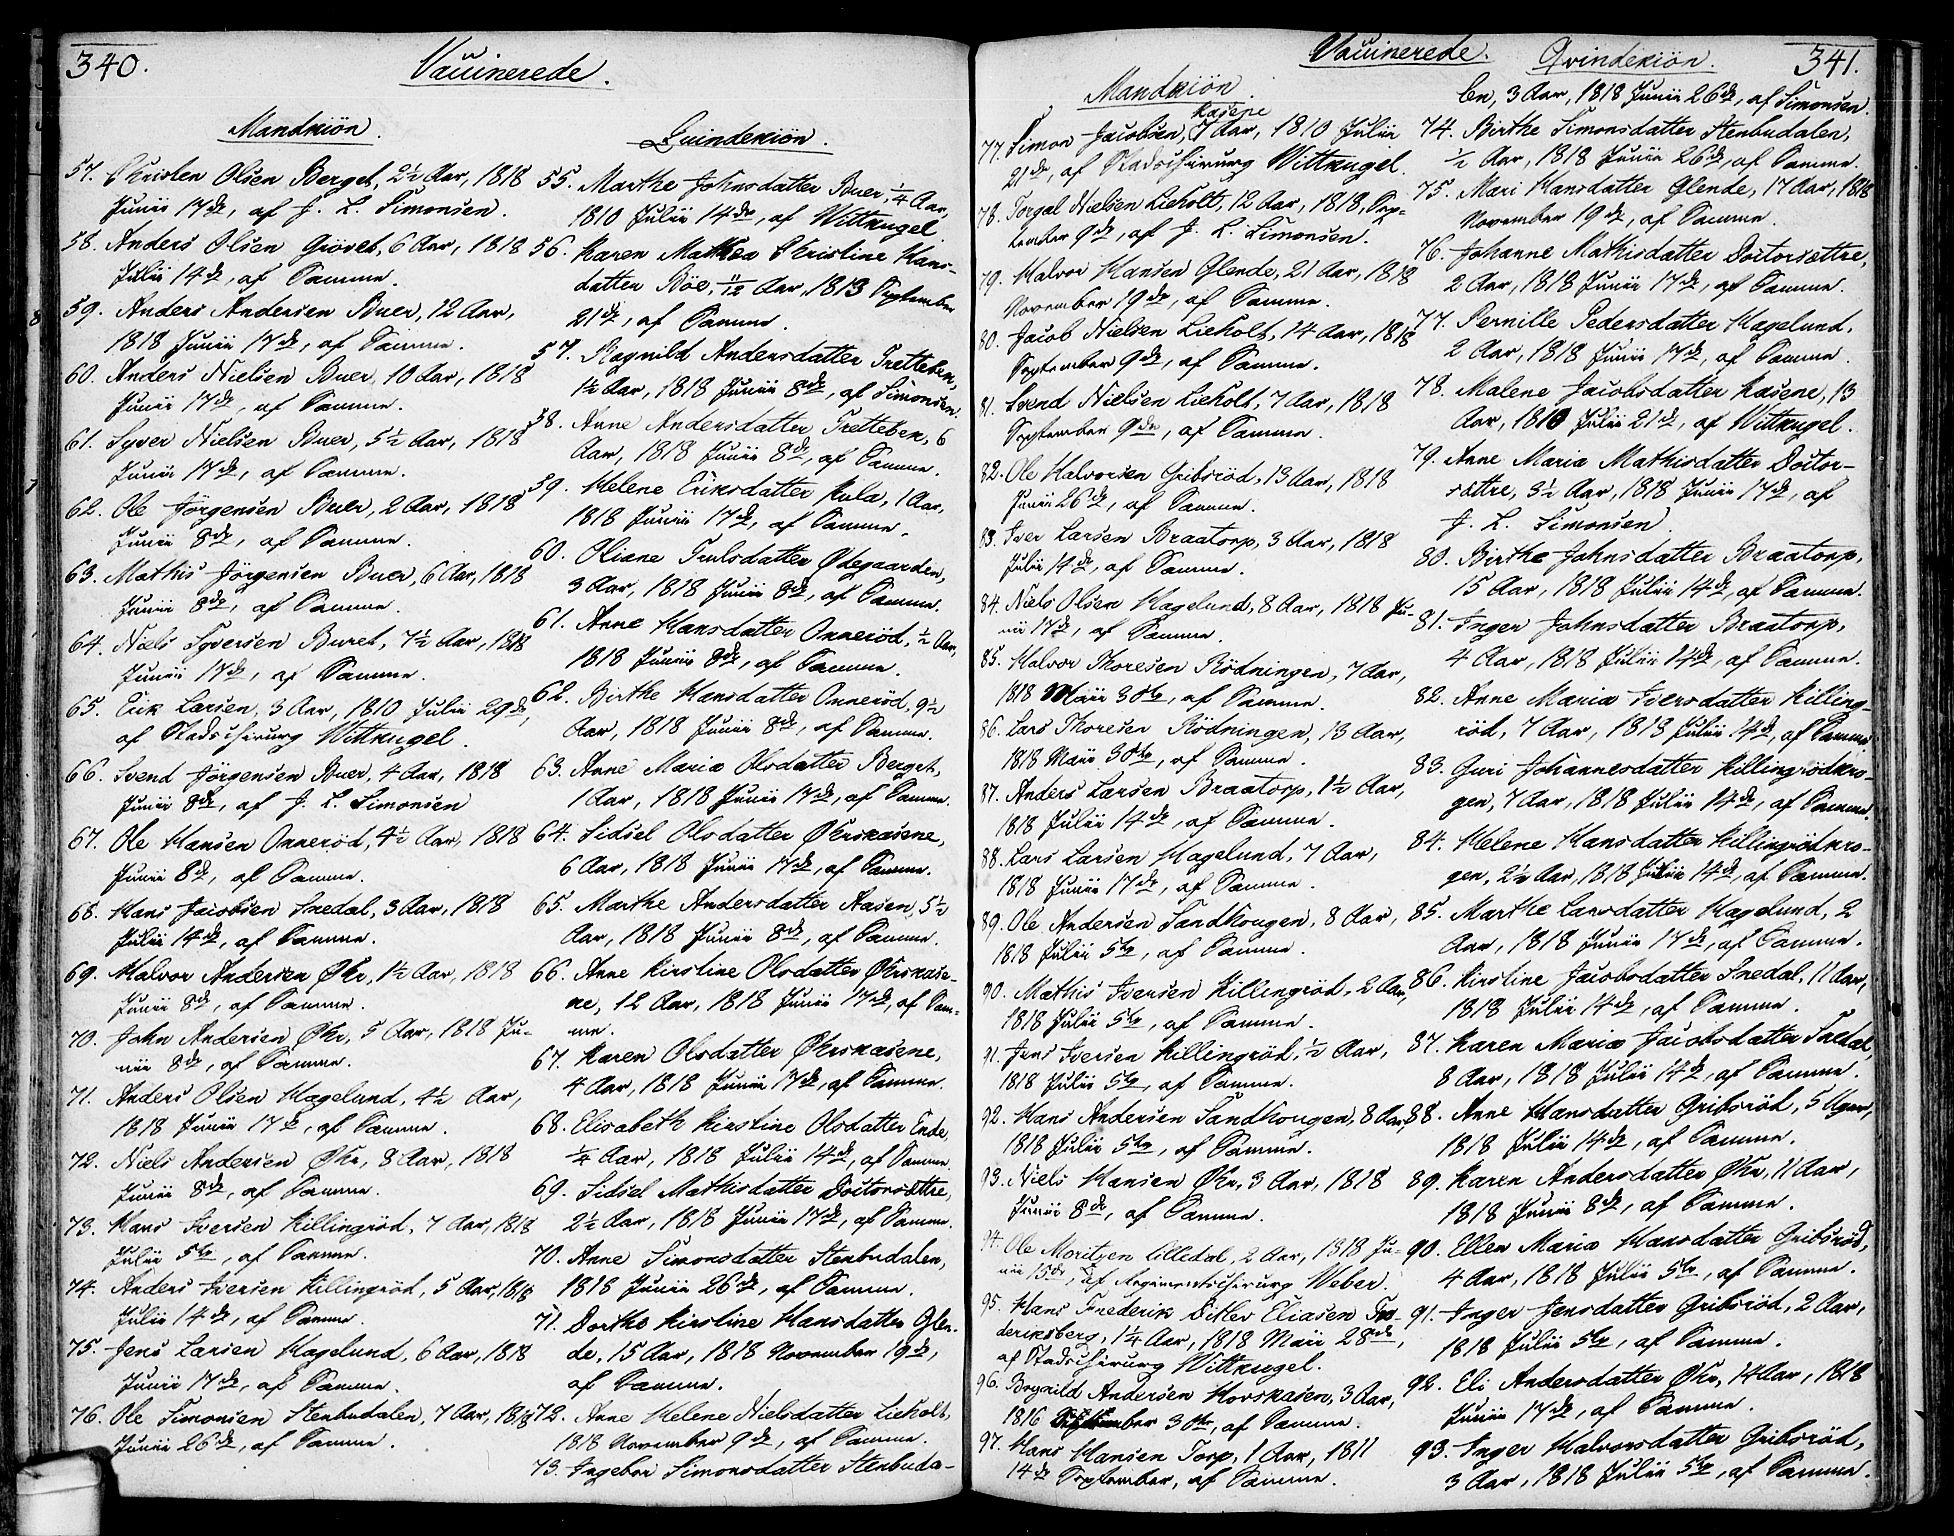 340.
Vaccinerede.
Mandkiön.
57. Christen Olsen Berget, 2½ Aar, 1818
Junii 17de, af J. L. Simonsen.
58. Anders Olsen Giövet, 6 Aar, 1818
Julii 14de, af Samme.
59. Anders Andersen Buer, 12 Aar,
1818 Junii 17de, af Samme.
60. Anders Nielsen Buer, 10 Aar, 1818
Junii 17de, af Samme.
61. Syver Nielsen Buer, 5½ Aar, 1818
Junii 17de, af Samme.
62. Ole Jörgensen Buer, 2 Aar, 1818
Junii 8de, af Samme.
63. Mathis Jörgensen Buer, 6 Aar, 1818
Junii 8de, af Samme.
64. Niels Syversen Buret, 7½ Aar, 1818
Junii 17de, af Samme.
65. Erik Larsen, 3 Aar, 1810 Julii 29de,
af Stadschirurg Wittkugel.
66. Svend Jörgensen Buer, 4 Aar, 1818
Junii 8de, af J. L. Simonsen
67. Ole Hansen Onneröd, 4½ Aar, 1818
Junii 8de, af Samme.
68. Hans Jacobsen Snedal, 3 Aar, 1818
Julii 14de, af Samme.
69. Halvor Andersen Öhr, 1½ Aar, 1818
Junii 8de, af Samme.
70. John Andersen Öhr, 5 Aar, 1818 Ju-
nii 8de, af Samme.
71. Anders Olsen Hagelund, 4½ Aar,
1818 Junii 17de, af Samme.
72. Niels Andersen Öhr, 8 Aar, 1818
Junii 8de, af Samme.
73. Hans Iversen Killingröd, 7 Aar, 1818
Julii 5te, af Samme.
74. Anders Iversen Killingröd, 5 Aar, 1818
Julii 14de, af Samme.
75. Jens Larsen Hagelund, 6 Aar, 1818
Junii 17de, af Samme.
76. Ole Simonsen Stenbudalen, 7 Aar, 1818
Junii 26de, af Samme.
Quindekiön.
55. Marthe Johnsdatter Buer, ¼ Aar,
1810 Julii 14de, af Wittkugel
56. Karen Mathea Christine Hans-
datter Böe, 11/12 Aar, 1813 September
21de, af Samme.
57. Ragnild Andersdatter Tretteben,
1½ Aar, 1818 Junii 8de, af Simonsen.
58. Anne Andersdatter Tretteben, 6
Aar, 1818 Junii 8de, af Samme.
59. Helene Eriksdatter Hula, 1 Aar,
1818 Junii 17de, af Samme.
60. Oliane Trulsdatter Ödegaarden,
3 Aar, 1818 Junii 8de, af Samme.
61. Anne Hansdatter Onneröd, ½ Aar,
1818 Junii 8de, af Samme.
62. Birthe Hansdatter Onneröd, 9½
Aar, 1818 Junii 8de, af Samme.
63. Anne Maria Olsdatter Berget,
1 Aar, 1818 Junii 17de, af Samme.
64. Sidsel Olsdatter Öhrskasene,
6 Aar, 1818 Junii 17de, af Samme.
65. Marthe Andersdatter Aasen, 5½
Aar, 1818 Junii 8de, af Samme.
66. Anne Kirstine Olsdatter Öhrskase-
ne, 12 Aar, 1818 Junii 17de, af Sam-
me.
67. Karen Olsdatter Öhrskasene,
4 Aar, 1818 Junii 17de, af Samme.
68. Elisabeth Kirstine Olsdatter Ende,
¼ Aar, 1818 Julii 14de, af Samme.
69. Sidsel Mathisdatter Doctorsættre,
2½ Aar, 1818 Junii 17de, af Samme.
70. Anne Simonsdatter Stenbudalen,
1818 Junii 26de, af Samme.
71. Dorthe Kirstine Hansdatter Glen-
de, 15 Aar, 1818 November 19de,
af Samme.
72. Anne Helene Nielsdatter Lieholt,
1818 November 9de, af Samme.
73. Ingebor Simonsdatter Stenbuda-
Vaccinerede.
341.
Mandkiön.
Kasene
77. Simon Jacobsen, 7 Aar, 1810 Julii
21de, af Stadschirurg Wittkugel.
78. Torgal Nielsen Lieholt, 12 Aar, 1818, Sep-
tember 9de, af J. L. Simonsen.
79. Halvor Hansen Glende, 21 Aar, 1818
November 19de, af Samme.
80. Jacob Nielsen Lieholt, 14 Aar, 1818
September 9de, af Samme.
81. Svend Nielsen Lieholt, 7 Aar, 1818
September 9de, af Samme.
82. Ole Halvorsen Gribsröd, 13 Aar, 1818
Junii 26de, af Samme.
83. Iver Larsen Braatorp, 3 Aar, 1818
Julii 14de, af Samme.
84. Niels Olsen Hagelund, 8 Aar, 1818 Ju-
nii 17de, af Samme.
85. Halvor Thoresen Rödningen, 7 Aar,
1818 Maii 30te, af Samme.
86. Lars Thoresen Rödningen, 13 Aar,
1818 Maii 30te, af Samme.
87. Anders Larsen Braatorp, 1½ Aar,
1818 Julii 14de, af Samme.
88. Lars Larsen Hagelund, 7 Aar,
1818 Junii 17de, af Samme.
89. Ole Andersen Sandhougen, 8 Aar,
1818 Julii 5te, af Samme.
90. Mathis Iversen Killingröd, 2 Aar,
1818 Julii 5te, af Samme.
91. Jens Iversen Killingröd, ½ Aar,
1818 Julii 5te, af Samme.
92. Hans Andersen Sandhougen, 8 Aar,
1818 Julii 5te, af Samme.
93. Niels Hansen Öhr, 3 Aar, 1818
Junii 8de, af Samme.
94. Ole Moritzen Lilledal, 2 Aar, 1818 Ju-
nii 15de, af Regimentschirurg Weber.
95. Hans Frederik Ditlev Eliasen Fre-
deriksberg, 1¼ Aar, 1818 Maii 28de,
af Stadschirurg Wittkugel.
96. Brynild Andersen Horskasen, 3 Aar,
1816 30te, af Samme.
97. Hans Hansen Torp, 1 Aar, 1811
14de September, af Samme.
Qvindekiön.
len, 3 Aar, 1818 Junii 26de, af Simonsen.
74. Birthe Simonsdatter Stenbudalen,
½ Aar, 1818 Junii 26de, af Samme.
75. Mari Hansdatter Glende, 17 Aar, 1818
November 19de, af Samme.
76. Johanne Mathisdatter Doctorsættre,
2 Aar, 1818 Junii 17de, af Samme.
77. Pernille Pedersdatter Hagelund,
2 Aar, 1818 Junii 17de, af Samme
78. Malene Jacobsdatter Kasene, 13
Aar, 1810 Julii 21de, af Wittkugel.
79. Anne Maria Mathisdatter Doctor-
sættre, 3½ Aar, 1818 Junii 17de, af
J. L. Simonsen.
80. Birthe Johnsdatter Braatorp,
15 Aar, 1818 Julii 14de, af Samme.
81. Inger Johnsdatter Braatorp,
4 Aar, 1818 Julii 14de, af Samme.
82. Anne Maria Iversdatter Killing-
röd, 7 Aar, 1818 Julii 14de, af Samme
83. Guri Johannesdatter Killingrödkro-
gen, 7 Aar, 1818 Julii 14de, af Samme.
84. Helene Hansdatter Killingrödkro-
gen, 2½ Aar, 1818 Julii 14de, af Samme.
85. Marthe Larsdatter Hagelund, 2
Aar, 1818 Junii 17de, af Samme.
86. Kirstine Jacobsdatter Snedal, 11 Aar,
1818 Julii 14de, af Samme.
87. Karen Maria Jacobsdatter Snedal,
8 Aar, 1818 Julii 14de, af Samme.
88. Anne Hansdatter Gribsröd, 5 Uger,
1818 Julii 14de, af Samme.
89. Karen Andersdatter Öhr, 11 Aar,
1818 Junii 8de, af Samme.
90. Ellen Maria Hansdatter Gribsröd,
4 Aar, 1818 Julii 5te, af Samme.
91. Inger Jensdatter Gribsröd, 2 Aar,
1818 Julii 5te, af Samme.
92. Eli Andersdatter Öhr, 14 Aar, 1818
Junii 17de, af Samme.
93. Inger Halvorsdatter Gribsröd,
3 Aar, 1818 Julii 5te, af Samme.